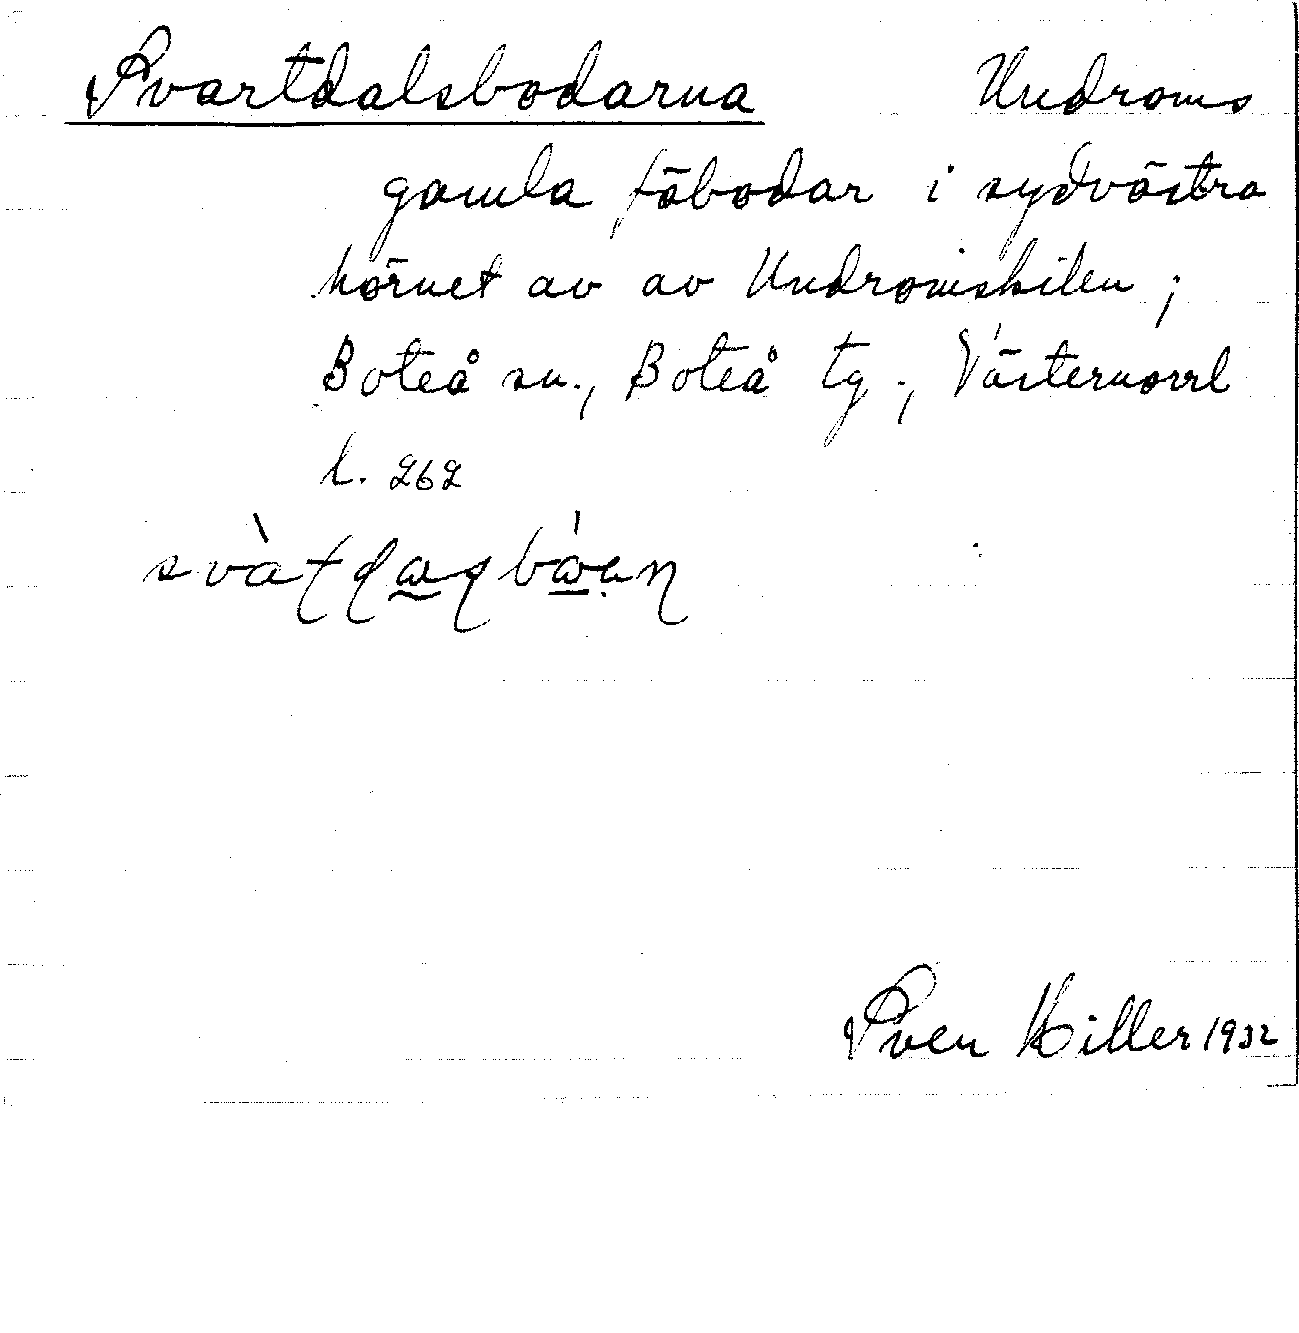 Svartdalsbodarna Undroms
gamla fäbodar i sydvästra
hörnet av av Undromskilen;
Boteå sn., Boteå tg., Västernorrl
l. 262
Sven Hiller 1932